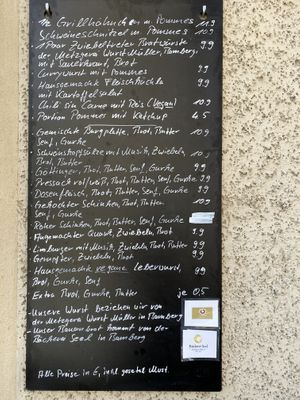 ½ Grillhähnchen m. Pommes 11,9
Schweineschnitzel m. Pommes 10,9
1 Paar Zwiebeltreter Bratwürste 9,9
der Metzgerei Wurst Müller, Bamberg,
mit Sauerkraut, Brot
Currywurst mit Pommes 9,9
Hausgemachte Fleischküchla 9,9
mit Kartoffelsalat
Chili sin Carne mit Reis (Vegan) 10,9
Portion Pommes mit Ketchup 4,5
Gemischte Burgplatte, Brot, Butter 10,9
Senf, Gurke
Schweinskopfsülze mit Musik, Zwiebeln, 10,9
Brot, Butter
Göttinger, Brot, Butter, Senf, Gurke 9,9
Pressack rot/weiß, Brot, Butter, Senf, Gurke 9,9
Dosenfleisch, Brot, Butter, Senf, Gurke 9,9
Gekochter Schinken, Brot, Butter 10,9
Senf, Gurke
Roher Schinken, Brot, Butter, Senf, Gurke
Angemachter Quark, Zwiebeln, Brot 7,9
Limburger mit Musik, Zwiebeln, Brot, Butter 9,9
Gerupfter, Zwiebeln, Brot 9,9
Hausgemachte vegane Leberwurst, 9,9
Brot, Gurke, Senf
Extra Brot, Gurke, Butter je 0,5
-Unsere Wurst beziehen wir von
der Metzgerei Wurst Müller in Bamberg
-unser Bauernbrot kommt von der
Bäckerei Seel in Bamberg
Bäckerei Seel
Alle Preise in €, inkl. gesetzl. Mwst.